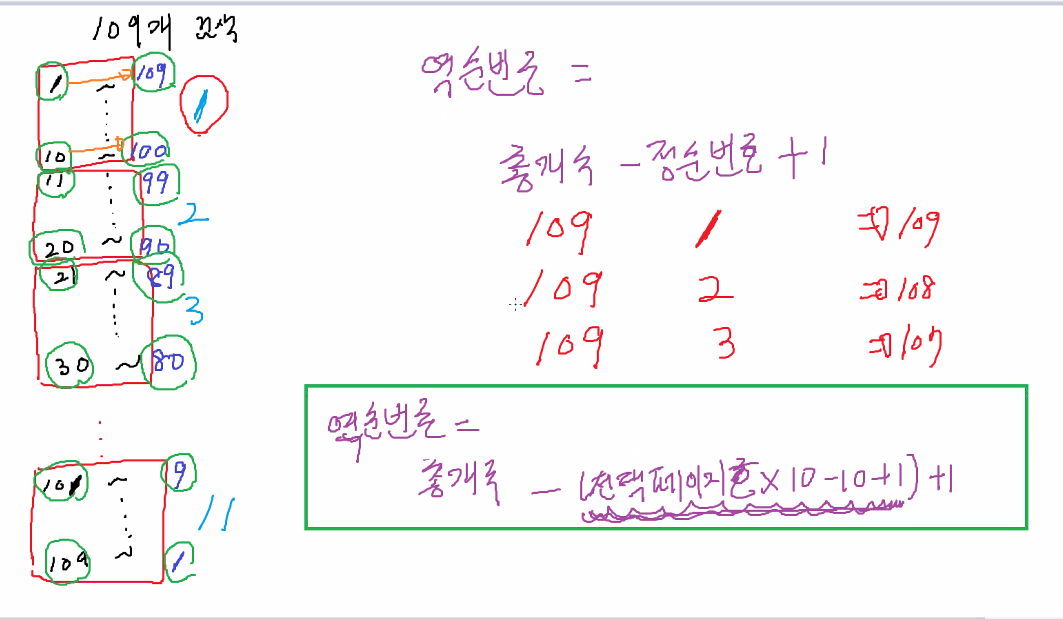 109개 검색
1 ~ 109
1
10 ~ 100
11 99
2
20 ~ 90
21 ~ 89
3
30 ~ 80
101 ~ 9
11
109 ~ 1
역순번호 =
총개수 - 정순번호 + 1
109 1 => 109
109 2 => 108
109 3 => 107
역순번호 =
총개수 - (선택페이지번호 × 10 - 10 + 1) + 1